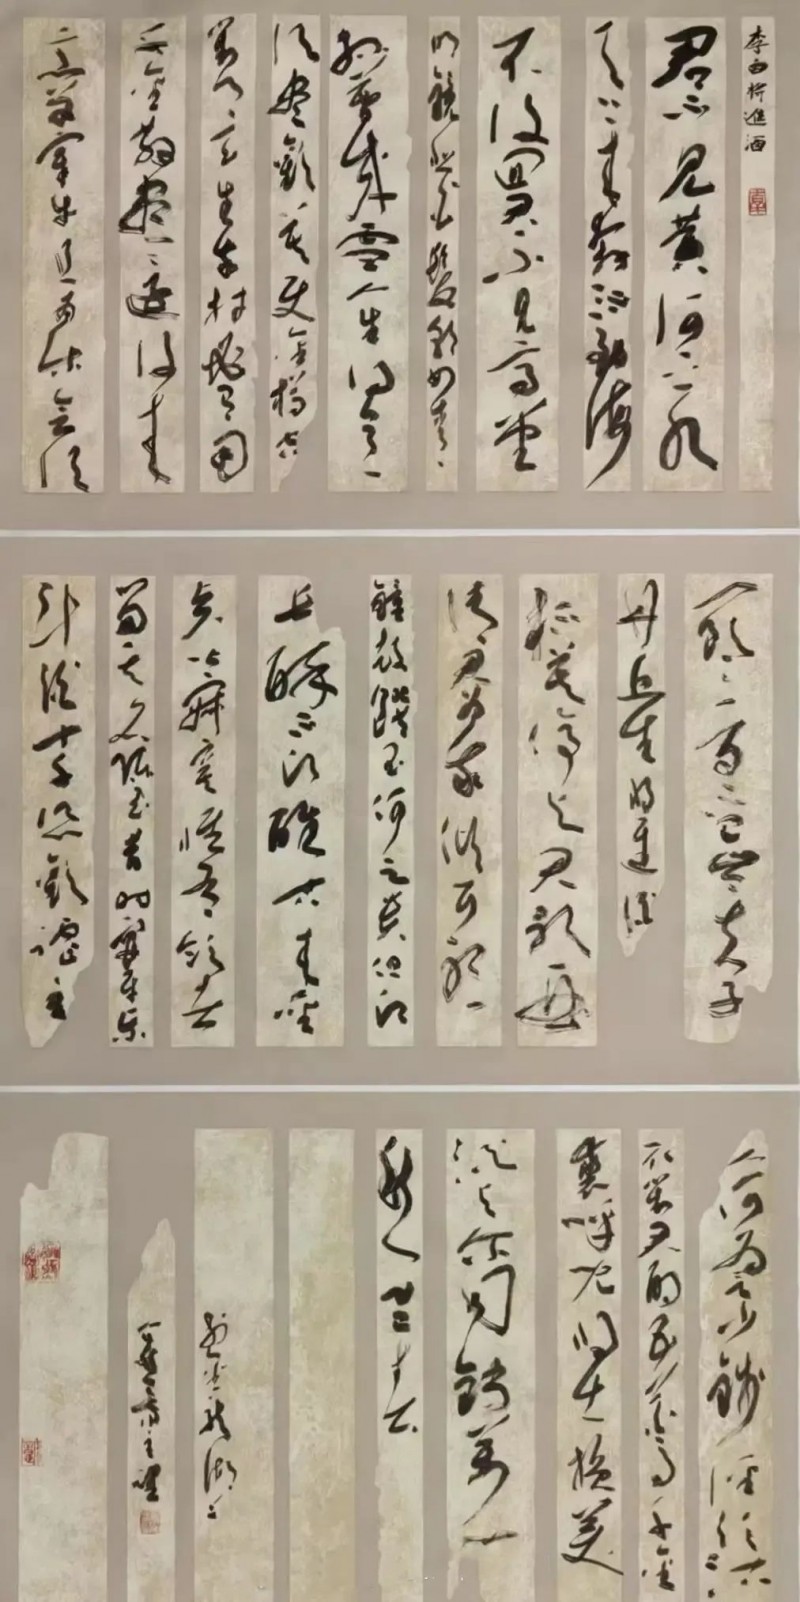 李白将進酒
君不見黄河之水
天上来奔流到海
不復回君不見高堂
明鏡悲白髮朝如青
絲暮成雪人生得意
須盡歡莫使金樽空
對月天生吾材必有用
千金散盡還復来
烹羊宰牛且為樂會須
一飲三百杯岑夫子
丹丘生将進酒
杯莫停与君歌一曲
請君为我傾耳聽
鐘鼓饌玉何足貴但願
長醉不願醒古来聖
賢皆寂寞惟有飲者
留其名陈王昔時宴平樂
斗酒十千恣歡謔主
人何为言少錢徑須沽
取对君酌五花馬千金
裘呼兒将出换美
酒与尔同銷萬